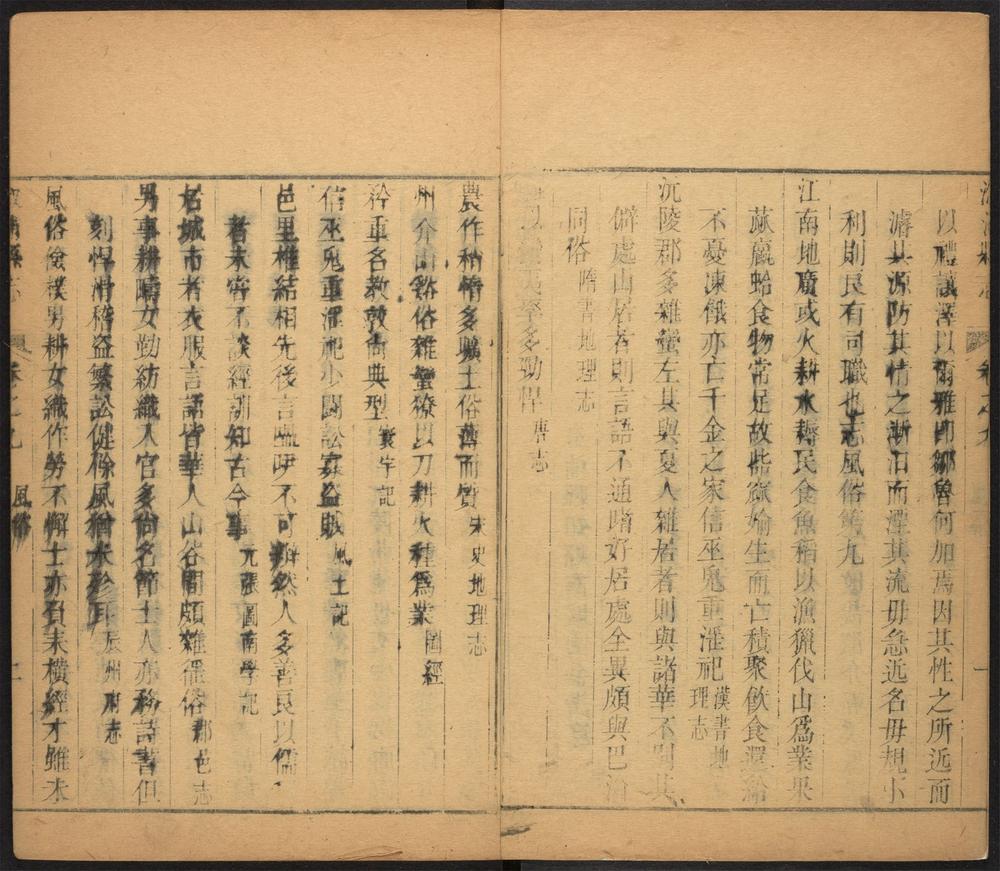 以禮讓澤以爾雅即鄒魯何加焉因其性之所近而
濬其源防其情之漸汨而湮其流毋急近名毋規小
利則良有司職也志風俗第九
江南地廣或火耕水耨民食魚稻以漁獵伐山為業果
蓏蠃蛤食物常足故呰窳媮生而亡積聚飲食還給
不憂凍餓亦亡千金之家信巫鬼重淫祀漢書地理志
沅陵郡多雜蠻左其與夏人雜居者則與諸華不別其
僻處山居者則言語不通嗜好居處全異頗與巴渝
同俗隋書地理志
以蠻夷聚多勁悍唐志
農作稍惰多曠土俗薄而質宋史地理志
州介山谿俗雜蠻獠以刀耕火種為業圖經
矜重名教敦尚典型 記
信巫鬼重淫祀少鬪訟寡盜賊風土記
邑里椎結相先後言嗢咿不可辨然人多善良以儒
者未嘗不談經訓知古今事元張圖南學記
居城市者衣服言語皆華人山谷間頗雜徭俗郡邑志
男事耕疇女勤紡織入官多尚名節士人亦務詩書但
刻悍滑稽盜繁訟健 辰州府志
風俗儉樸男耕女織作勞不懈士亦負耒橫經才雖未
卷之九 風俗 二